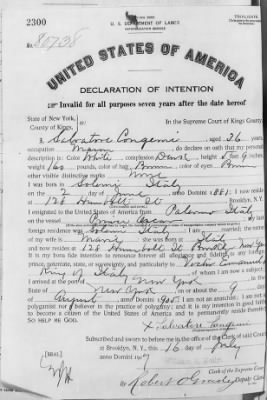 2300
TRIPLICATE
U. S. DEPARTMENT OF LABOR
NATURALIZATION SERVICE
No. 80738
UNITED STATES OF AMERICA
DECLARATION OF INTENTION
Invalid for all purposes seven years after the date hereof
State of New York,
County of Kings,
In the Supreme Court of Kings County.
I, Salvatore Congemi, aged 36 years,
occupation Mason, do declare on oath that my personal
description is: Color White, complexion Dark, height 5 feet 9 inches,
weight 160 pounds, color of hair Brown, color of eyes Brown
other visible distinctive marks None
I was born in Salemi Italy
on the 2 day of June, anno Domini 1881; I now reside
at 128 Humboldt St Brooklyn, N.Y.
I emigrated to the United States of America from Palermo Italy
on the vessel; my last
foreign residence was Salemi Italy; I am married; the name
of my wife is Maria; she was born at Italy
and now resides at 128 Humboldt St Brooklyn New York
It is my bona fide intention to renounce forever all allegiance and fidelity to any foreign
prince, potentate, state, or sovereignty, and particularly to Victor Emanuel
King of Italy, of whom I am now a subject;
I arrived at the port of New York, in the
State of New York, on or about the 9 day
of August, anno Domini 1905; I am not an anarchist; I am not a
polygamist nor a believer in the practice of polygamy; and it is my intention in good faith
to become a citizen of the United States of America and to permanently reside therein:
SO HELP ME GOD.
x Salvatore Congemi
Subscribed and sworn to before me in the office of the Clerk of said Court
at Brooklyn, N.Y., this 16 day of July
anno Domini 1917
[SEAL]
Clerk of the Supreme Court.
By Robert O'Grady, Deputy Clerk.